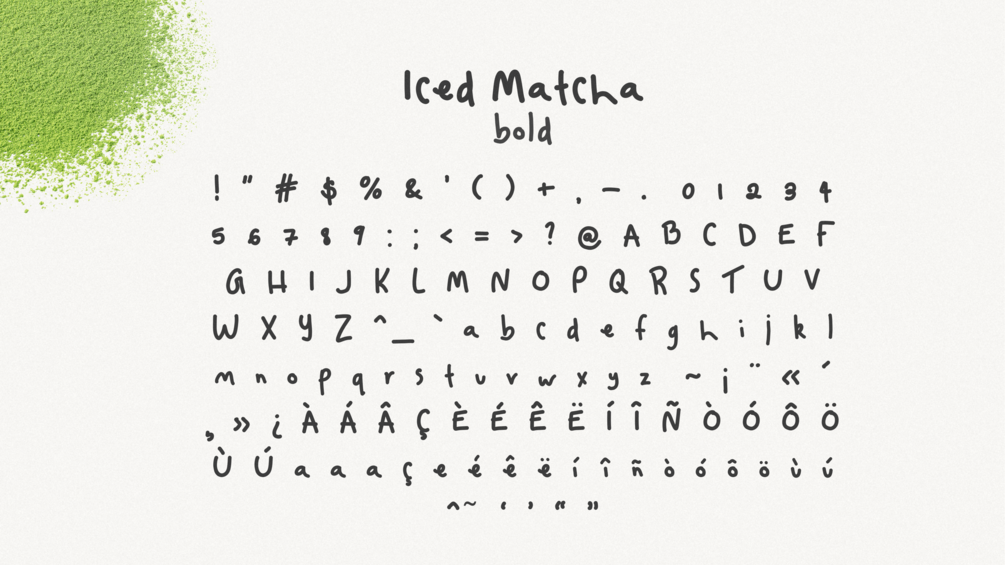 Iced Matcha
bold
! " # $ % & ' ( ) + , - . 0 1 2 3 4
5 6 7 8 9 : ; < = > ? @ A B C D E F
G H I J K L M N O P Q R S T U V
W X Y Z ^ _ ` a b c d e f g h i j k l
m n o p q r s t u v w x y z ~ ¡ ¨ « ´
¸ » ¿ À Á Â Ç È É Ê Ë Í Î Ñ Ò Ó Ô Ö
Ù Ú a a a ç e é ê ë í î ñ ò ó ô ö ù ú
^ ~ ‘ ’ “ ”